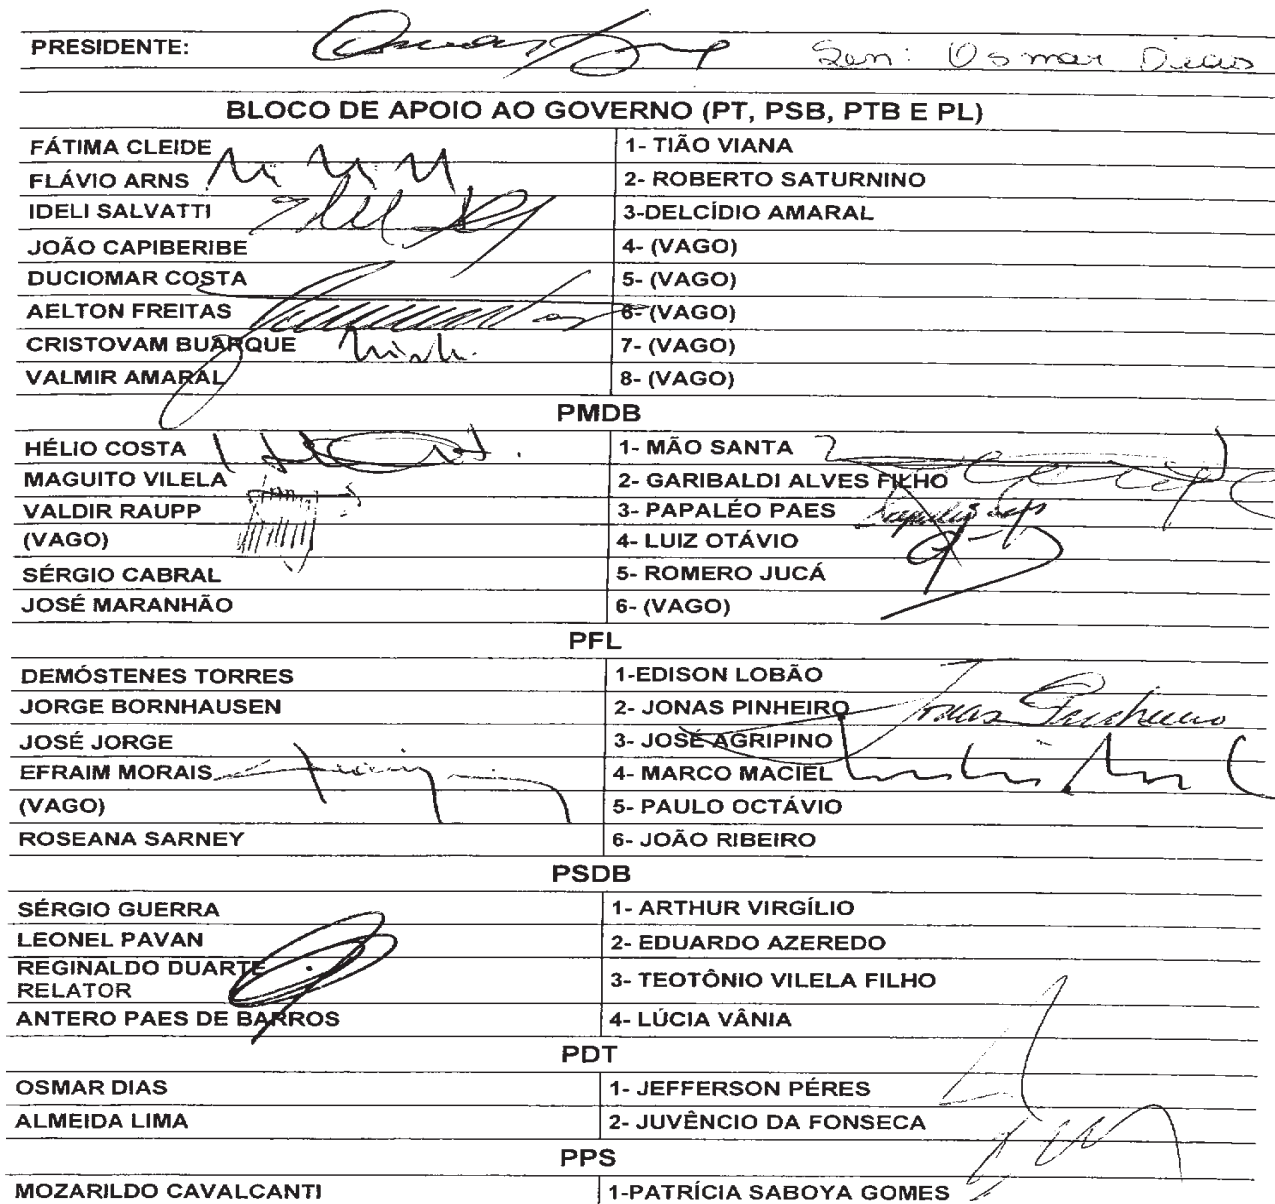 PRESIDENTE: Sen: Osmar Dias
BLOCO DE APOIO AO GOVERNO (PT, PSB, PTB E PL)
FÁTIMA CLEIDE 1- TIÃO VIANA
FLÁVIO ARNS 2- ROBERTO SATURNINO
IDELI SALVATTI 3-DELCÍDIO AMARAL
JOÃO CAPIBERIBE 4- (VAGO)
DUCIOMAR COSTA 5- (VAGO)
AELTON FREITAS 6- (VAGO)
CRISTOVAM BUARQUE 7- (VAGO)
VALMIR AMARAL 8- (VAGO)
PMDB
HÉLIO COSTA 1- MÃO SANTA
MAGUITO VILELA 2- GARIBALDI ALVES FILHO
VALDIR RAUPP 3- PAPALÉO PAES
(VAGO) 4- LUIZ OTÁVIO
SÉRGIO CABRAL 5- ROMERO JUCÁ
JOSÉ MARANHÃO 6- (VAGO)
PFL
DEMÓSTENES TORRES 1-EDISON LOBÃO
JORGE BORNHAUSEN 2- JONAS PINHEIRO Jonas Pinheiro
JOSÉ JORGE 3- JOSÉ AGRIPINO
EFRAIM MORAIS 4- MARCO MACIEL
(VAGO) 5- PAULO OCTÁVIO
ROSEANA SARNEY 6- JOÃO RIBEIRO
PSDB
SÉRGIO GUERRA 1- ARTHUR VIRGÍLIO
LEONEL PAVAN 2- EDUARDO AZEREDO
REGINALDO DUARTE
RELATOR 3- TEOTÔNIO VILELA FILHO
ANTERO PAES DE BARROS 4- LÚCIA VÂNIA
PDT
OSMAR DIAS 1- JEFFERSON PÉRES
ALMEIDA LIMA 2- JUVÊNCIO DA FONSECA
PPS
MOZARILDO CAVALCANTI 1-PATRÍCIA SABOYA GOMES